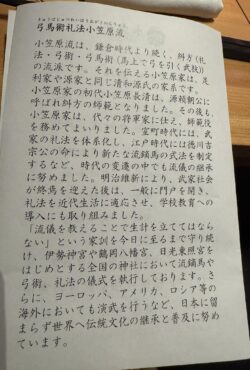 弓馬術礼法小笠原流
小笠原流は、鎌倉時代より続く、糾方(礼
法・弓術・弓馬術(馬上で弓を引く武技))
の流派です。それを伝える小笠原家は、足
利家や源家と同じ清和源氏の家系です。
小笠原家の初代小笠原長清は、源頼朝公に
呼ばれ糾方の師範となりました。その後も、
小笠原家は、代々の将軍家に仕え、師範役
を務めてまいりました。室町時代には、武
家の礼法を体系化し、江戸時代には徳川吉
宗公の命により新たな流鏑馬の式法を制定
するなど、時代の変遷の中でも流儀の継承
に努めました。明治維新により、武家社会
が終焉を迎えた後は、一般に門戸を開き、
礼法を近代生活に適応させ、学校教育への
導入にも取り組みました。
「流儀を教えることで生計を立ててはなら
ない」という家訓を今日に至るまで守り続
け、伊勢神宮や鶴岡八幡宮、日光東照宮を
はじめとする全国の神社において流鏑馬や
弓術、礼法の儀式を執行しております。さ
らに、ヨーロッパ、アメリカ、ロシア等の
海外においても演武を行うなど、日本に留
まらず世界へ伝統文化の継承と普及に努め
ています。